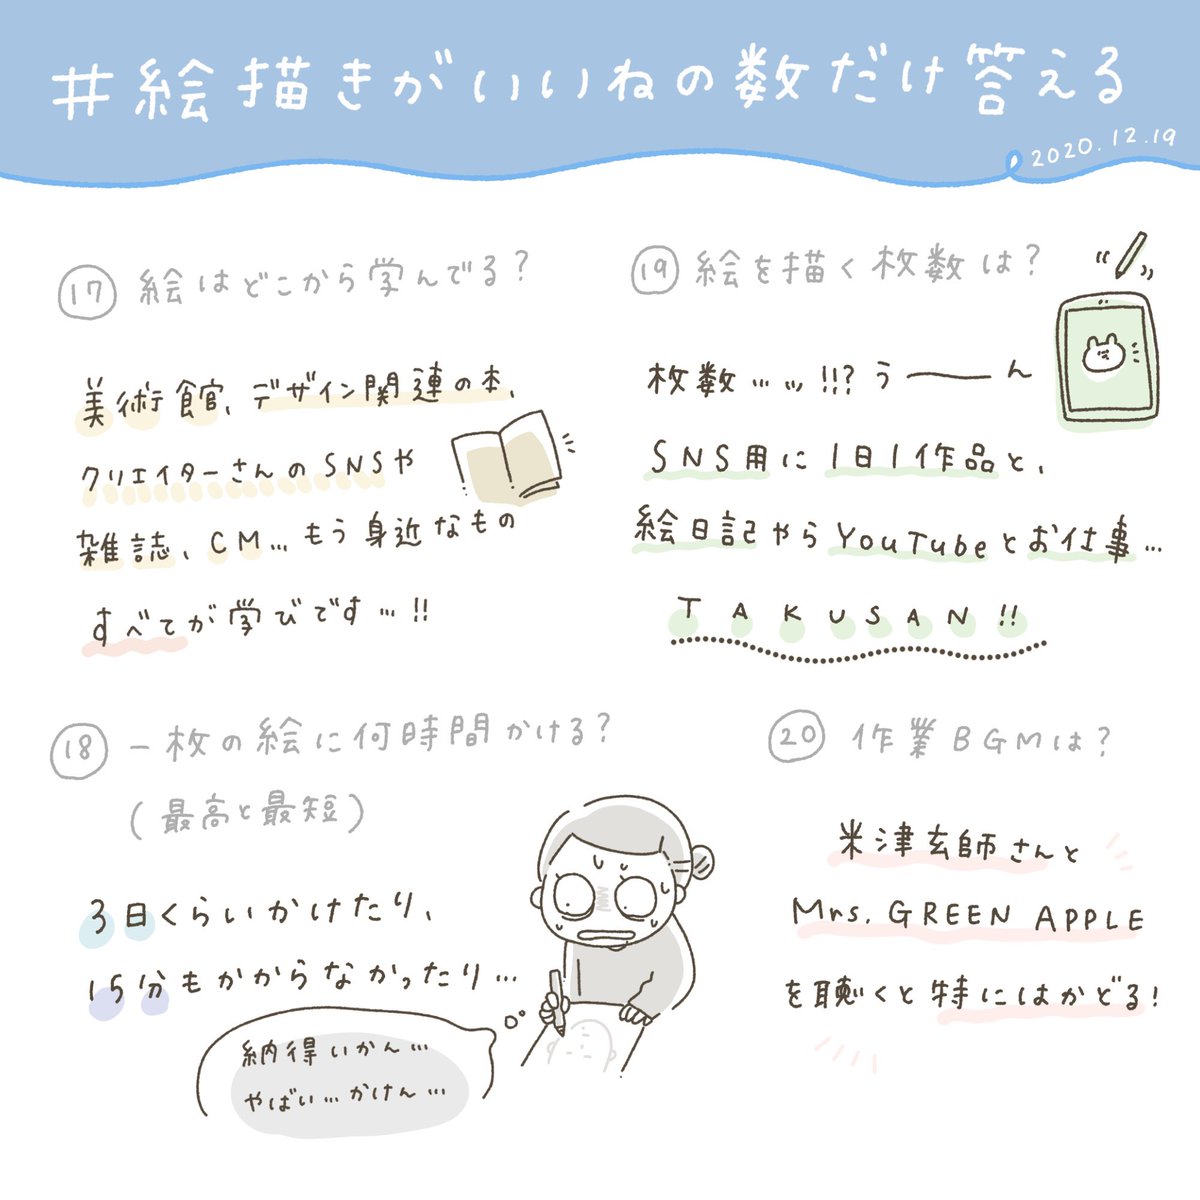 #絵描きがいいねの数だけ答える
2020.12.19
⑰ 絵はどこから学んでる?
美術館、デザイン関連の本、
クリエイターさんのSNSや
雑誌、CM…もう身近なもの
すべてが学びです…!!
⑱ 一枚の絵に何時間かける?
(最高と最短)
3日くらいかけたり、
15分もかからなかったり…
納得いかん…
やばい…かけん…
⑲ 絵を描く枚数は?
枚数…ッ!!?う――ん
SNS用に1日1作品と、
絵日記やらYouTubeとお仕事…
TAKUSAN!!
⑳ 作業BGMは?
米津玄師さんと
Mrs. GREEN APPLE
を聴くと特にはかどる!